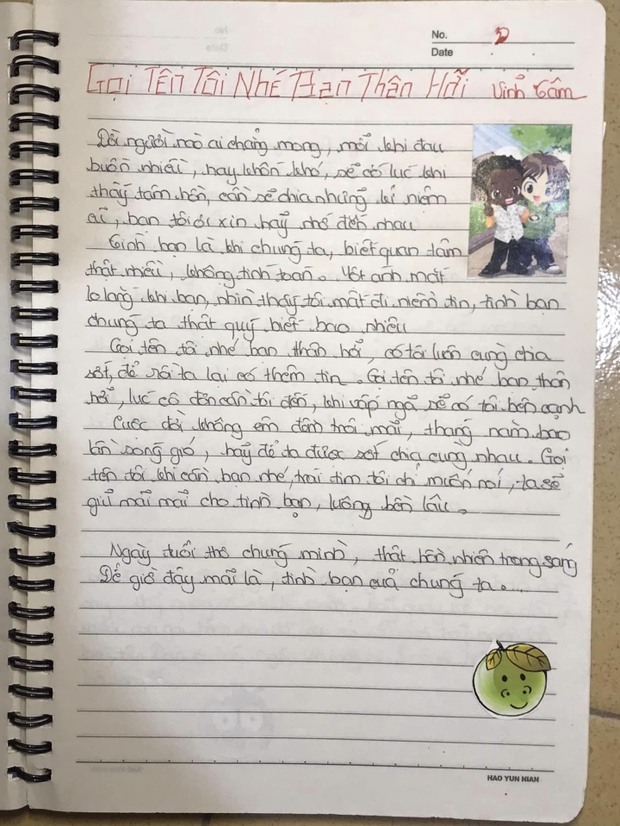 No. 2
Date
Gọi Tên Tôi Nhé Bạn Thân Hỡi Vĩnh Tâm
Đời người nào ai chẳng mong, mỗi khi đau
buồn nhiều, hay khốn khó, sẽ có lúc khi
thấy tâm hồn, cần sẻ chia những kỉ niệm
cũ, bạn tôi ơi xin hãy nhớ đến nhau
Tình bạn là khi chúng ta, biết quan tâm
thật nhiều, không tính toán. Với ánh mắt
lo lắng khi bạn, nhìn thấy tôi mất đi niềm tin, tình bạn
chúng ta thật quý biết bao nhiêu
Gọi tên tôi nhé bạn thân hỡi, có tôi luôn cùng chia
sớt, để rồi ta lại có thêm tin. Gọi tên tôi nhé bạn thân
hỡi, lúc cô đơn cần tôi đến, khi vấp ngã sẽ có tôi bên cạnh
Cuộc đời không êm đềm trôi mãi, tháng năm bao
lần sóng gió, hãy để ta được sớt chia cùng nhau. Gọi
tên tôi khi cần bạn nhé, trái tim tôi chỉ muốn nói, ta sẽ
giữ mãi mãi cho tình bạn, luông bền lâu.
Ngày tuổi thơ chúng mình, thật hồn nhiên trong sáng
Để giờ đây mãi là, tình bạn của chúng ta....
HAO YUN NIAN